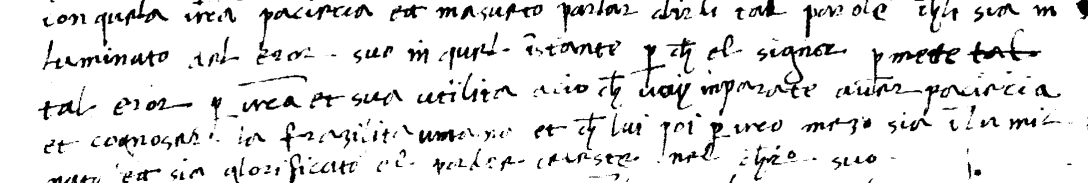 ion quela vr̃a paciētia et masueto parlar dirli tal parole ch'li sia in
luminato del eror suo in quel īstante p ch̃ el signor pmete tal
tal eror p vr̃a et sua utilita acio ch̃ vuy inparate auer paciēcia
et cognoser la fragilita umana et ch̃ lui poi p vr̃o mezo sia ilumi
nato et sia glorificato el padre celeste nel suo